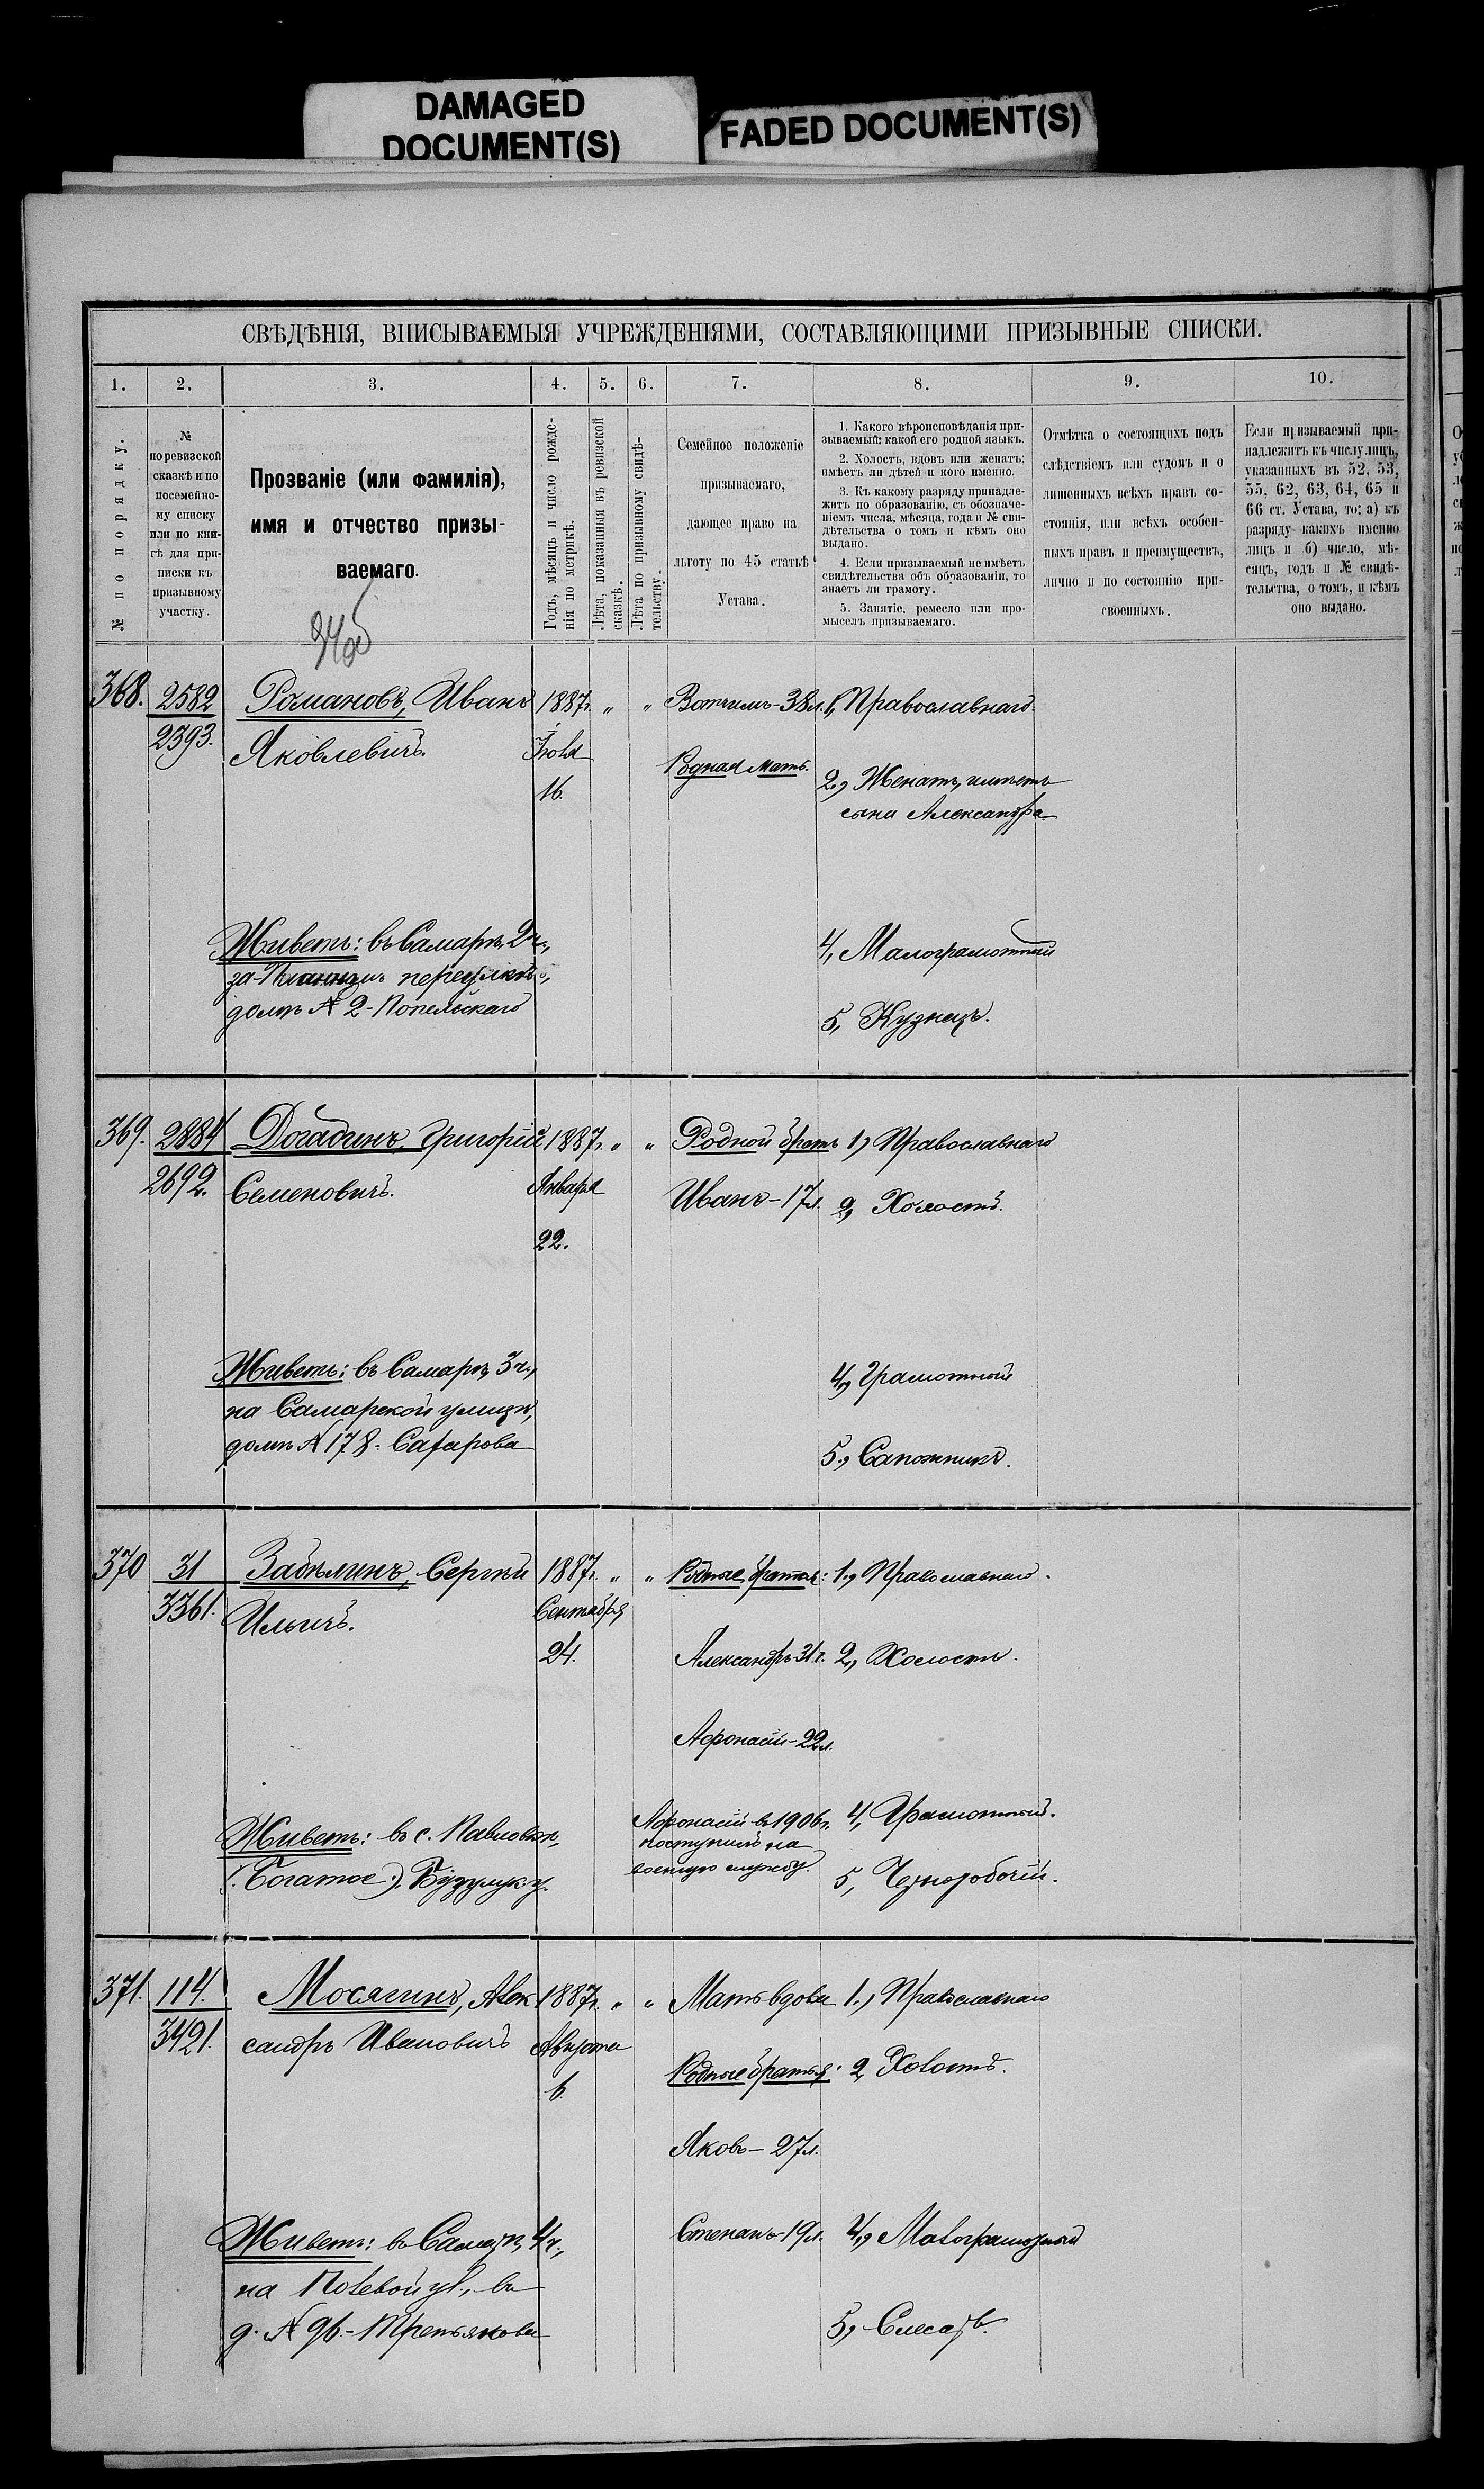 DAMAGED
DOCUMENT(S)
FADED DOCUMENT(S)
СВѢДѢНІЯ, ВПИСЫВАЕМЫЯ УЧРЕЖДЕНІЯМИ, СОСТАВЛЯЮЩИМИ ПРИЗЫВНЫЕ СПИСКИ.
1.
2.
3.
4.
5.
6.
7.
8.
9.
10.
№ по порядку.
№
по ревизской
сказкѣ и по
посемейно-
му списку
или по кни-
гѣ для при-
писки къ
призывному
участку.
Прозваніе (или фамилія),
имя и отчество призы-
ваемаго.
Годъ, мѣсяцъ и число рожде-
нія по метрикѣ.
Лѣта, показанныя въ ревизской
сказкѣ.
Лѣта по призывному свидѣ-
тельству.
Семейное положеніе
призываемаго,
дающее право на
льготу по 45 статьѣ
Устава.
1. Какого вѣроисповѣданія при-
зываемый: какой его родной языкъ.
2. Холостъ, вдовъ или женатъ;
имѣетъ ли дѣтей и кого именно.
3. Къ какому разряду принадле-
житъ по образованію, съ обозначе-
ніемъ числа, мѣсяца, года и № сви-
дѣтельства о томъ и кѣмъ оно
выдано.
4. Если призываемый не имѣетъ
свидѣтельства объ образованіи, то
знаетъ ли грамоту.
5. Занятіе, ремесло или про-
мыселъ призываемаго.
Отмѣтка о состоящихъ подъ
слѣдствіемъ или судомъ и о
лишенныхъ всѣхъ правъ со-
стоянія, или всѣхъ особен-
ныхъ правъ и преимуществъ,
лично и по состоянію при-
своенныхъ.
Если призываемый при-
надлежитъ къ числу лицъ,
указанныхъ въ 52, 53,
55, 62, 63, 64, 65 и
66 ст. Устава, то: а) къ
разряду какихъ именно
лицъ и б) число, мѣ-
сяцъ, годъ и № свидѣ-
тельства, о томъ, и кѣмъ
оно выдано.
368.
2582
2393.
Романовъ, Иванъ
Яковлевичъ.
1887г.
Іюля
16.
" "
Вотчимъ-38л.
Родная мать.
1, Православнаго.
2, Женатъ, имѣетъ
сына Александра
Живетъ: въ Самарѣ, 2ч.,
переулкѣ,
домъ № 2-Попельскаго
4, Малограмотный
5, Кузнецъ.
369.
2884
2692.
Догадинъ, Григорій
Семеновичъ.
1887г.
Января
22.
" "
Родной братъ
Иванъ-17л.
1, Православнаго
2, Холостъ.
Живетъ: въ Самарѣ, 3ч.,
на Самарской улицѣ,
домъ № 178-Сафарова
4, Грамотный
5, Сапожникъ.
370
31
3361.
Забѣлинъ, Сергѣй
Ильичъ.
1887г.
Сентября
24.
" "
Родные братья:
Александръ-31г.
Афонасій-22л.
Афонасій въ 1906г.
поступилъ на
военную службу.
1, Православнаго.
2, Холостъ.
Живетъ: въ с. Павловкѣ,
(Богатое), Бузулук. у.
4, Грамотный.
5, Чернорабочій.
371.
114.
3421.
Мосягинъ, Алек-
сандръ Ивановичъ
1887г.
Августа
6.
" "
Мать вдова
Родные братья:
Яковъ-27л.
Степанъ-19л.
1, Православнаго
2, Холостъ.
Живетъ: въ Самарѣ, 4ч.,
на Полевой ул., въ
д. № 96.-Третьякова
4, Малограмотный
5, Слесарь.